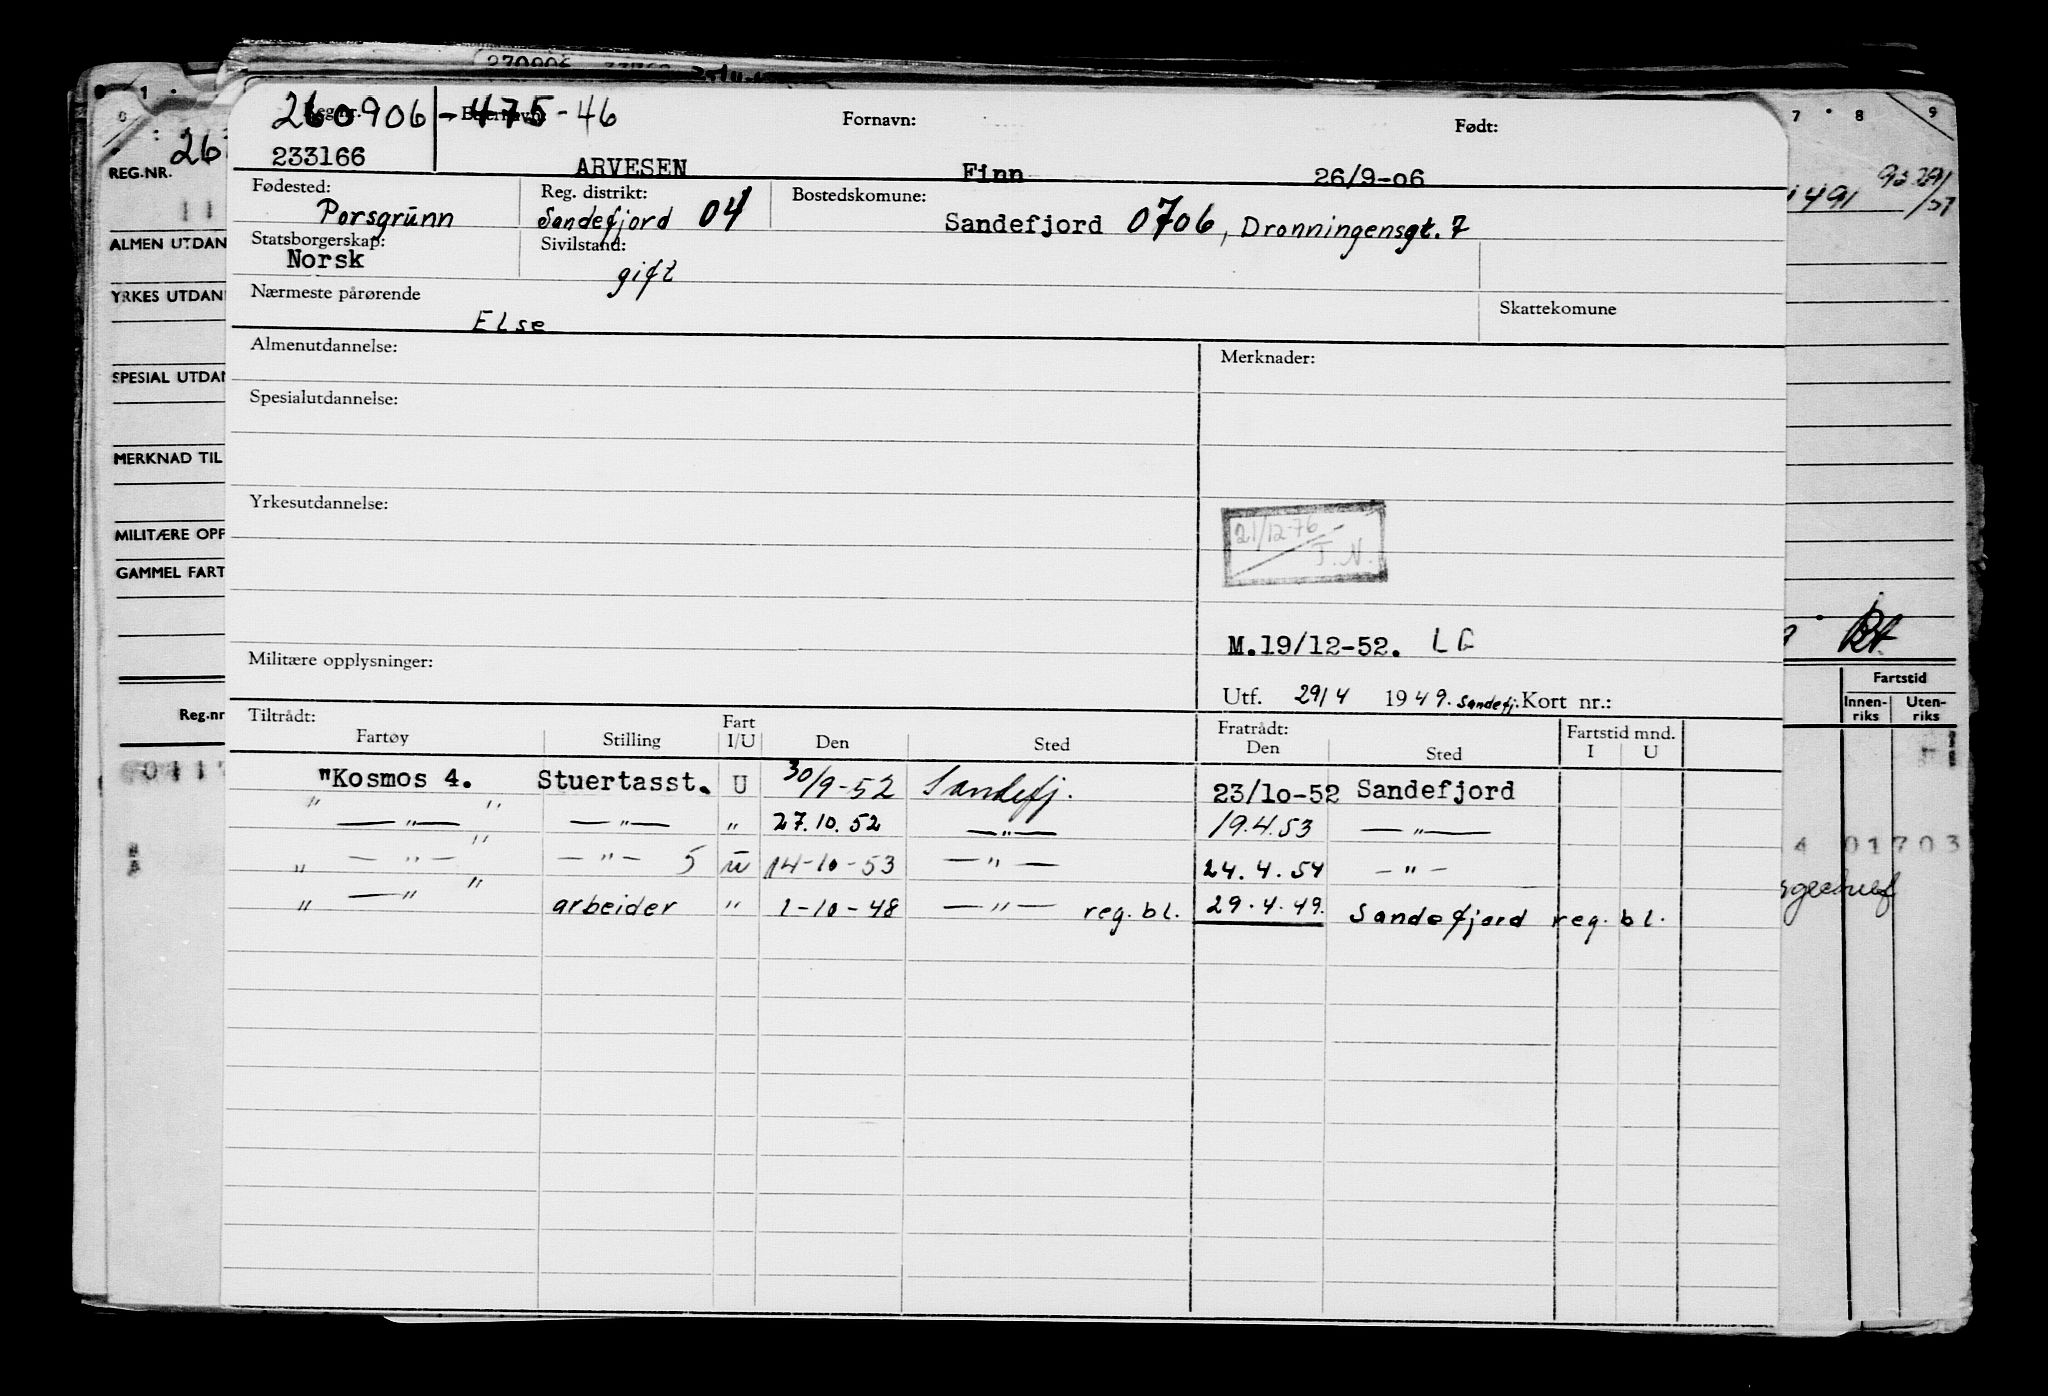 270906
1
0
7 8 9
260906 - 475-46
Reg.nr. Etternavn: Fornavn: Født:
26
REG.NR.
233166 ARVESEN Finn 26/9-06
1491
Fødested: Reg. distrikt: Bostedskomune:
11
Porsgrunn Sandefjord 04 Sandefjord 0706, Dronningensgt. 7
ALMEN UTDAN
Statsborgerskap: Sivilstand:
Norsk gift
YRKES UTDAN
Nærmeste pårørende Skattekomune
Else
Almenutdannelse: Merknader:
SPESIAL UTDAN
Spesialutdannelse:
MERKNAD TIL
Yrkesutdannelse:
21/12-76
T.N.
MILITÆRE OPP
GAMMEL FART
M.19/12-52. LG
Militære opplysninger:
Utf. 29/4 1949. Sandefj. Kort nr.:
Fartstid
Innen-riks Uten-riks
Reg.nr
Tiltrådt: Fratrådt: Fartstid mnd.
Fartøy Stilling Fart I/U Den Sted Den Sted I U
"Kosmos 4. Stuertasst. U 30/9-52 Sandefj. 23/10-52 Sandefjord
" — " — " — " — " 27.10.52 — " — 19.4.53 — " —
" — " — " — " — 5 u 14-10-53 — " — 24.4.54 — " —
" — " " arbeider " 1-10-48 — " — reg. bl. 29.4.49. Sandefjord reg. bl.
4 01703